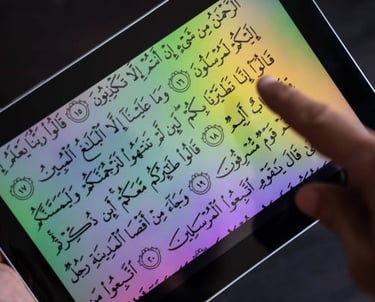 الرَّحْمَٰنُ مِن شَيْءٍ إِنْ أَنتُمْ إِلَّا تَكْذِبُونَ ١٥ قَالُوا رَبُّنَا يَعْلَمُ
إِلَيْكُمْ لَمُرْسَلُونَ ١٦ وَمَا عَلَيْنَا إِلَّا الْبَلَٰغُ الْمُبِينُ ١٧
قَالُوا إِنَّا تَطَيَّرْنَا بِكُمْ لَئِن لَّمْ تَنتَهُوا لَنَرْجُمَنَّكُمْ وَلَيَمَسَّنَّكُم
أَلِيمٌ ١٨ قَالُوا طَٰئِرُكُم مَّعَكُمْ أَئِن ذُكِّرْتُم
قَوْمٌ مُّسْرِفُونَ ١٩ وَجَاءَ مِنْ أَقْصَا الْمَدِينَةِ رَجُلٌ
قَالَ يَٰقَوْمِ اتَّبِعُوا الْمُرْسَلِينَ ٢٠ اتَّبِعُوا مَن